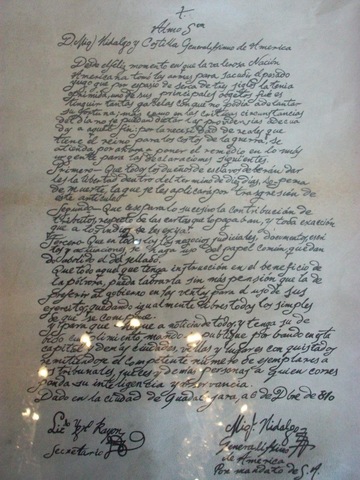 Almo Sor
D Mig! Hidalgo y Costilla Generalísimo de America
Desde el feliz momento en que la valerosa Nación
Americana tomó las armas para sacudir el pesado
yugo que por espacio de cerca de tres siglos la tenía
oprimida, uno de sus principales objetos fué
extinguir tantas gabelas con que no podía adelantar
su fortuna; mas como en las críticas circunstancias
del día no se puedan dictar las providencias adecua
das a aquel fin, por la necesidad de reales que
tiene el reino para los costos de la guerra, se
atienda por ahora a poner el remedio en lo más
urgente por las declaraciones siguientes
Primero-Que todos los dueños de esclavos deberán dar
les la libertad dentro del término de diez días, so pena
de muerte, la que se les aplicará por transgresión de
este artículo
Segundo-Que cese para lo sucesivo la contribución de
tributos, respecto de las castas que lo pagaban, y toda exacción
que a los indios se les exija.
Tercero-Que en todos los negocios judiciales, documentos, escri
tos y actuaciones, se haga uso del papel común, quedan
do abolido el del sellado.
Que todo aquel que tenga instrucción en el beneficio de
la pólvora, pueda labrarla, sin más pensión que la de
preferir al gobierno en las ventas para el uso de sus
ejércitos, quedando igualmente libres todos los simples
de que se compone.
Y para que llegue a noticia de todos y tenga su de
bido cumplimiento, mando se publique por bando en esta
capital y demás ciudades, villas y lugares conquistados
remitiéndose el competente número de ejemplares a
los tribunales, jueces y demás personas a quien corres
ponda su inteligencia y observancia.
Dado en la ciudad de Guadalajara, a 6 de Dbre de 810
Mig! Hidalgo
Secretario
Generalísimo
de America
Por mandato de S. A.